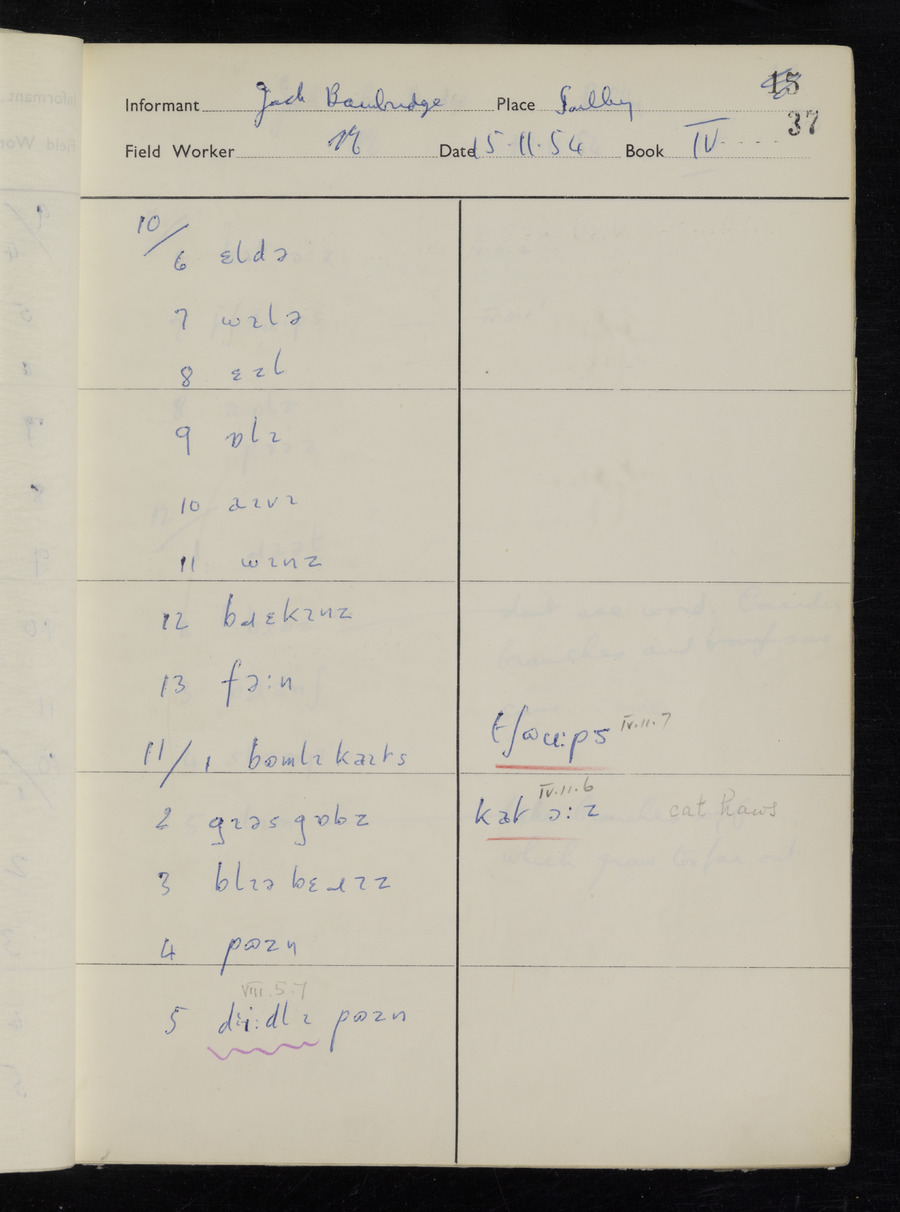 Informant Jack Place
15
37
Field Worker Date 15·11·54 Book IV
10/
6 ɛldə
7 wɪlə
8 ɛɪl
9 ɒlɪ
10 aɪvɪ
11 wɪnz
12 bɹɛkɪnz
13 fɔ:n
11/1 bɷmlɪ kaɪts
2 gɪəs gɒbz
3 blɪə bɛɹɪz
4 pɷɪn
VIII.5.7
5 pɷɪn
IV.11.7
IV.11.6
kat ɔ:z cat haws